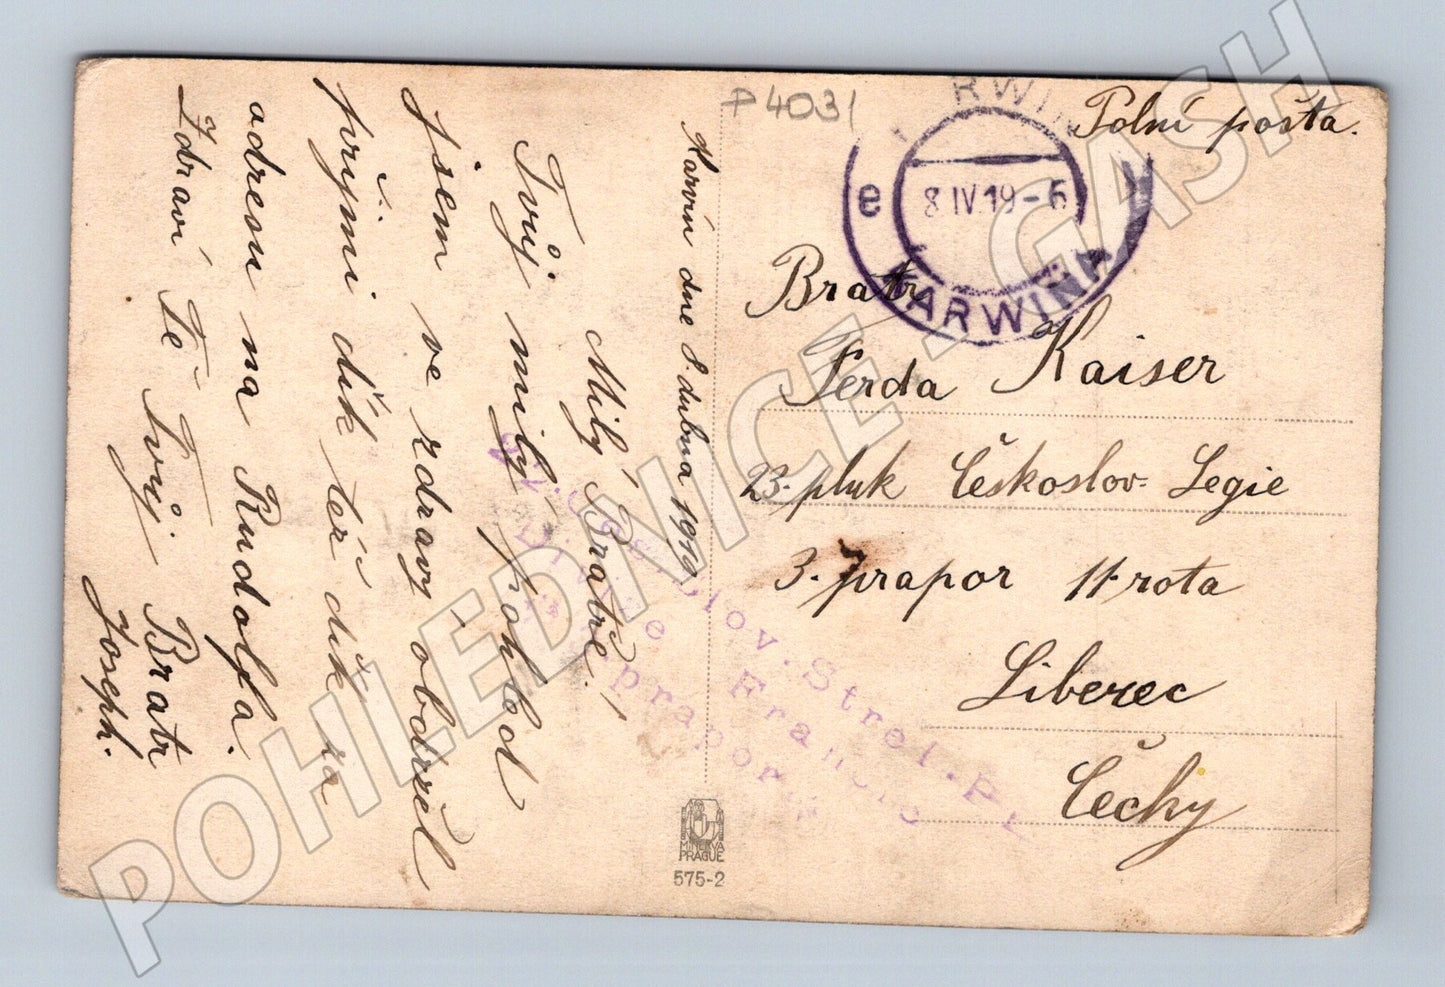 P 4031
Polní pošta.
KARWIN
e 8 IV 19-6
KARWINA
Bratr
Ferda Kaiser
23. pluk Českoslov. Legie
3. prapor 11. rota
Liberec
Čechy
Karvín dne 8 dubna 1919
Milý Bratře!
Tvůj milý pohled
jsem ve zdraví obdržel
přijmi dík též dík za
adresu na Rudolfa.
Zdraví Tě Tvůj Bratr
Joseph.
Českoslov. Střel. Pl
Divise Francie
prapor
MINERVA
PRAGUE
575-2
POHLEDNICE GASH